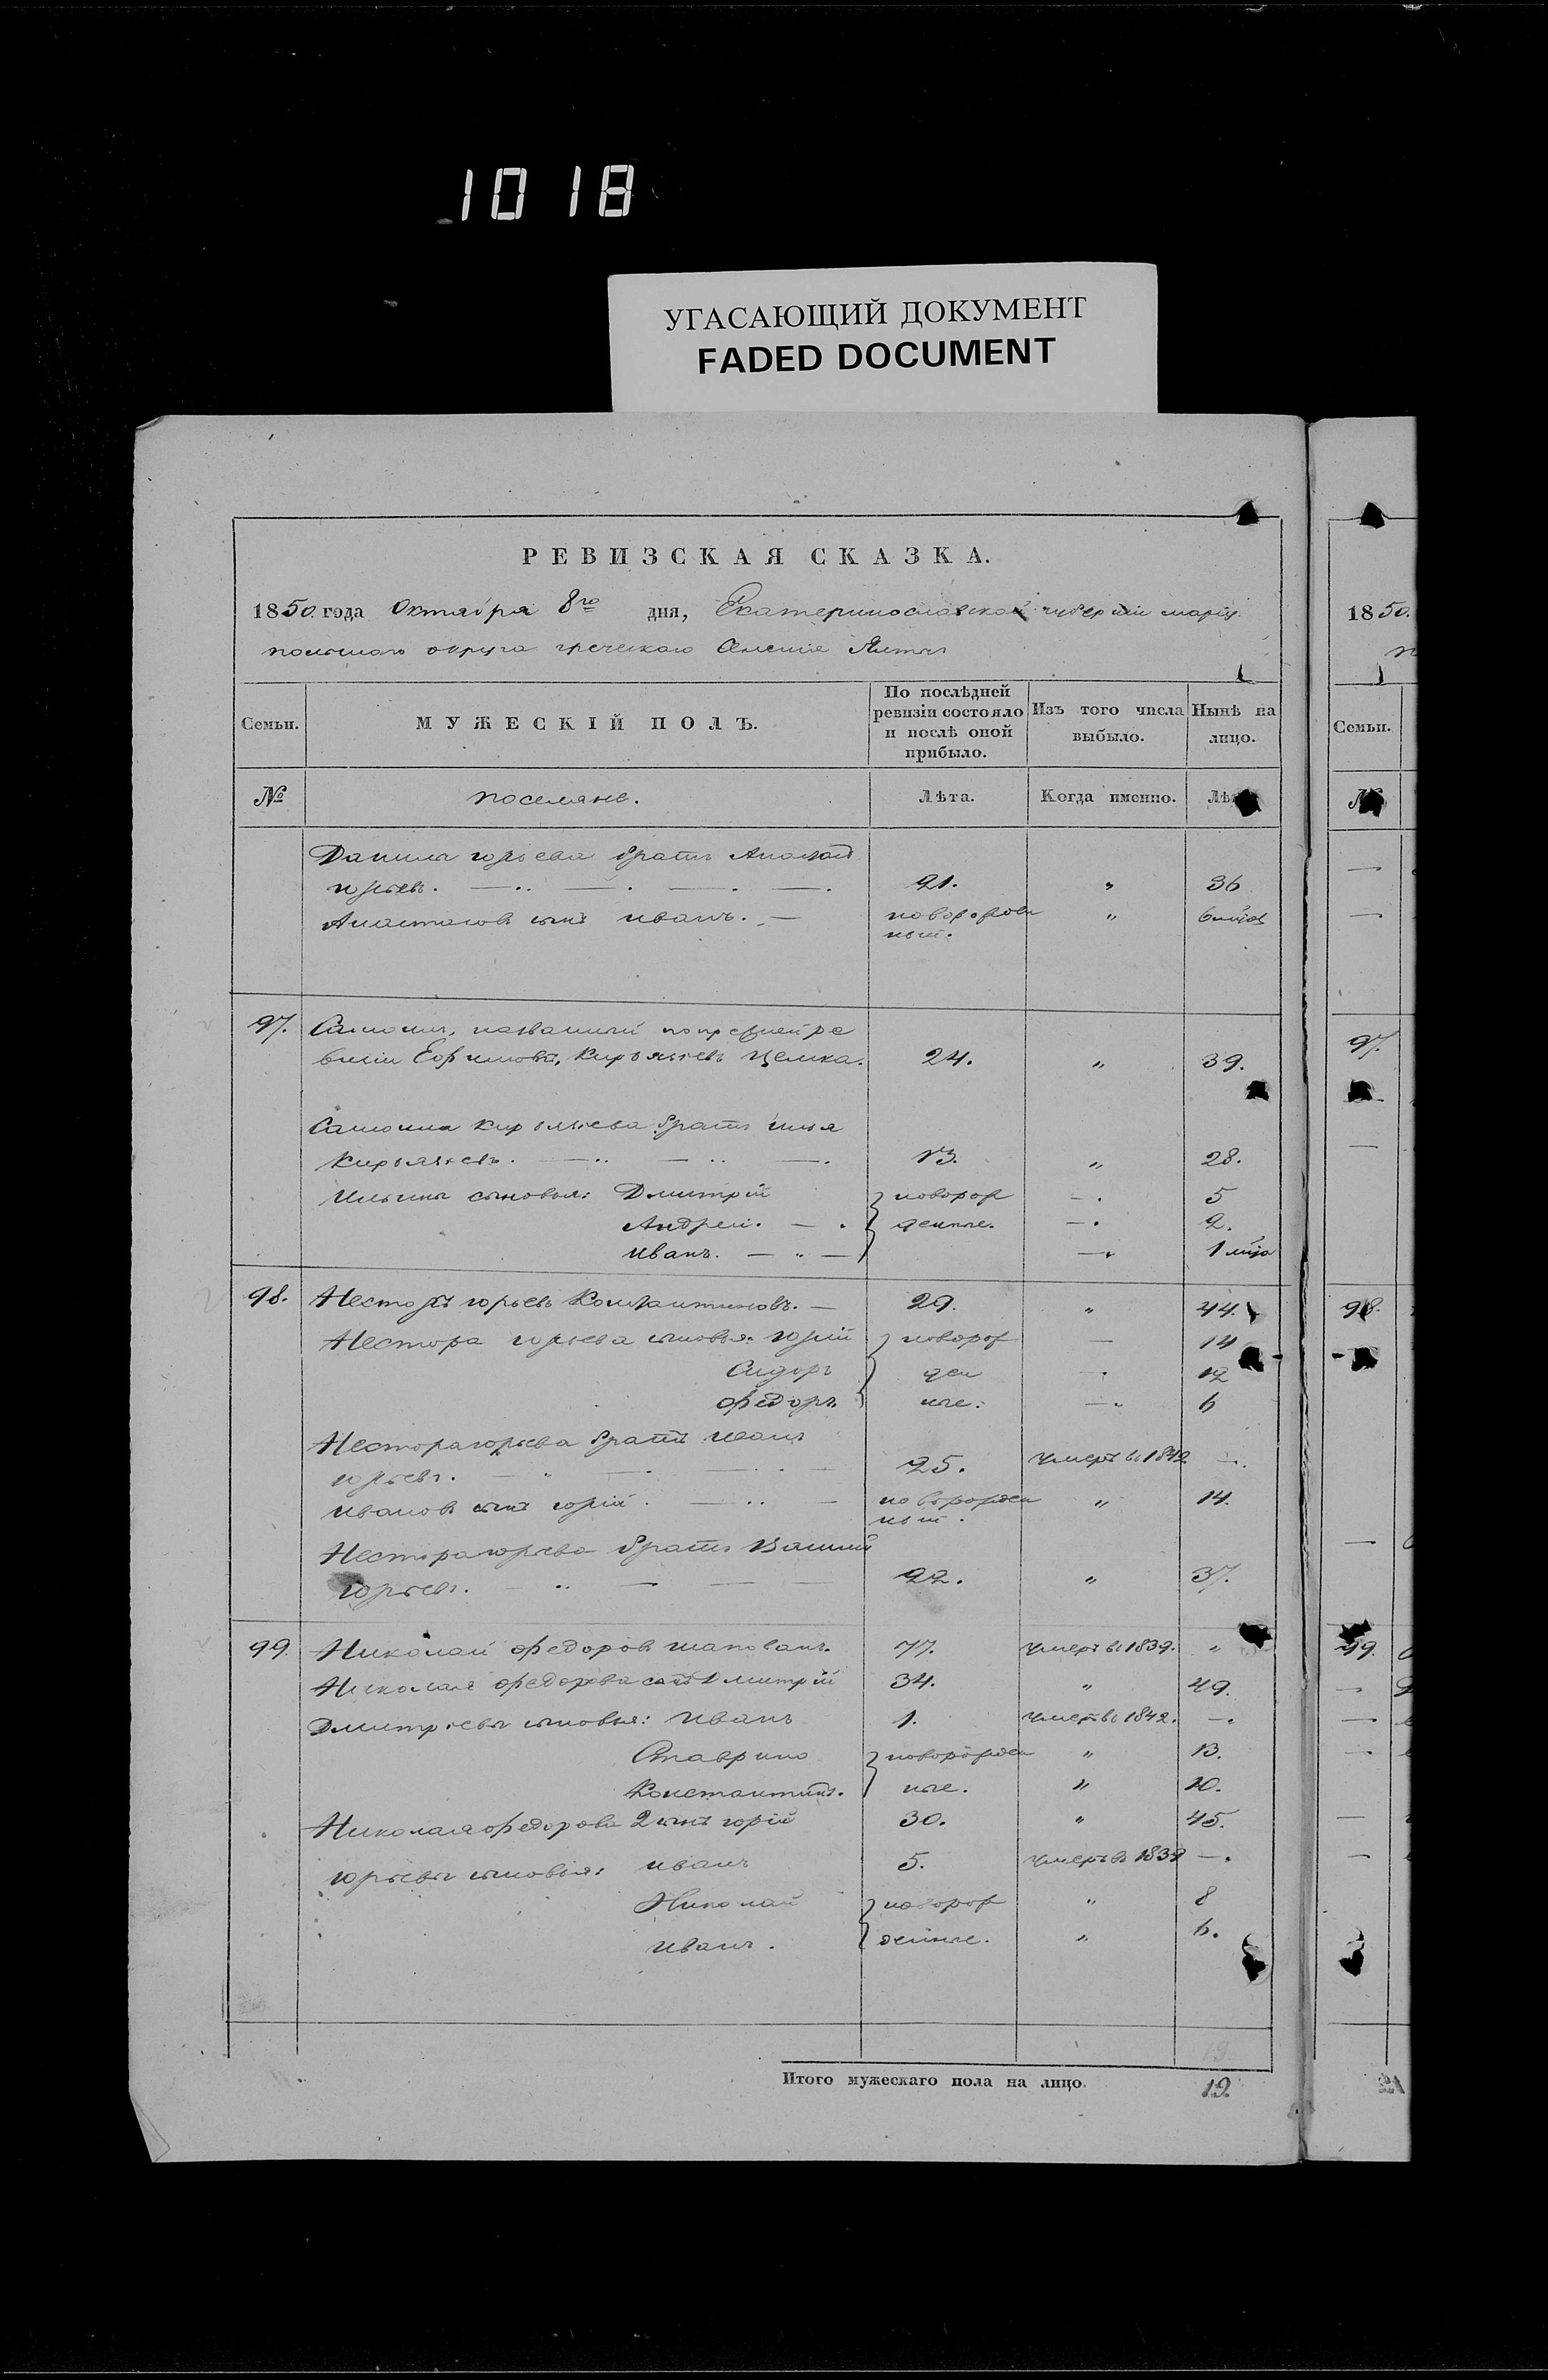 1018
УГАСАЮЩИЙ ДОКУМЕНТ
FADED DOCUMENT
РЕВИЗСКАЯ СКАЗКА.
1850. года Октября 8го дня, Екатеринославской губернiи марiу
польскаго округа греческаго Селенiя Ялты
Семьи. МУЖЕСКIЙ ПОЛЪ. По послѣдней ревизiи состояло и послѣ оной прибыло. Изъ того числа выбыло. Нынѣ на лицо.
№ поселяне. Лѣта. Когда именно.
Данила юрьева братъ
юрьевъ. 21. " 36
Анастасовъ сынъ иванъ. новорожден
ный. "
97. названный по прежней ре
визiи Кирьяковъ 24. " 39.
братъ илья
Кирьяковъ. 13. " 28.
Ильины сыновья: Дмитрiй новорож 5
Андрей. денные. 2.
Иванъ. 1
98. Несторъ юрьевъ Константиновъ. 29. " 44.
Нестора юрьева сыновья: юрiй новорож 14
Сидоръ ден 12
Федоръ ные. 6
Нестора юрьева братъ иванъ
юрьевъ. 25. умеръ въ 1842
ивановъ сынъ юрiй. новорожден " 14.
ный.
Нестора юрьева братъ Василiй
юрьевъ. 22. " 37.
99. Николай Федоровъ 77. умеръ въ 1839. "
Николая Федорова сынъ Дмитрiй 34. " 49.
Дмитрiевы сыновья: иванъ 1. умеръ въ 1842.
Ставрино новорожден " 13.
Константинъ. ные. " 10.
Николая Федорова 2 сынъ юрiй 30. " 45.
юрьевы сыновья: иванъ 5. умеръ въ
Николай новорож " 8
иванъ. денные. " 6.
Итого мужескаго пола на лицо. 19.
1850.
Семьи.
97.
98.
99.